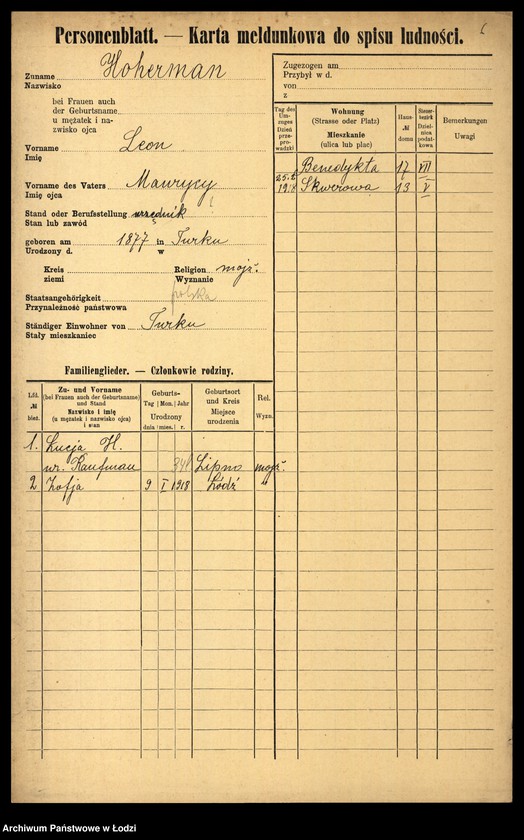 6
Personenblatt. — Karta meldunkowa do spisu ludności.
Zuname Hoherman
Nazwisko
bei Frauen auch
der Geburtsname
u mężatek i na-
zwisko ojca
Vorname Leon
Imię
Vorname des Vaters Maurycy
Imię ojca
Stand oder Berufsstellung urzędnik
Stan lub zawód
geboren am 1877 in Turku
Urodzony d. w
Kreis Religion mojż.
ziemi Wyznanie
Staatsangehörigkeit polska
Przynależność państwowa
Ständiger Einwohner von Turku
Stały mieszkaniec
Zugezogen am
Przybył w d.
von
z
Tag des Um-zuges Dzień prze-pro-wadzki
Wohnung
(Strasse oder Platz)
Mieszkanie
(ulica lub plac)
Haus-
№
domu
Steuer-bezirk Dziel-nica podat-kowa
Bemerkungen
Uwagi
Benedykta 17 VII
25.2. 1918 Skwerowa 13 V
Familienglieder. — Członkowie rodziny.
Lfd.
№
bież.
Zu- und Vorname
(bei Frauen auch der Geburtsname)
und Stand
Nazwisko i imię
(u mężatek i nazwisko ojca)
i stan
Geburts-
Tag Mon. Jahr
Urodzony
dnia mies. r.
Geburtsort
und Kreis
Miejsce
urodzenia
Rel.
Wyzn.
1. Łucja H.
ur. Kaufman 34l Lipno mojż.
2 Zofja 9 I 1918 Łódź "
Archiwum Państwowe w Łodzi